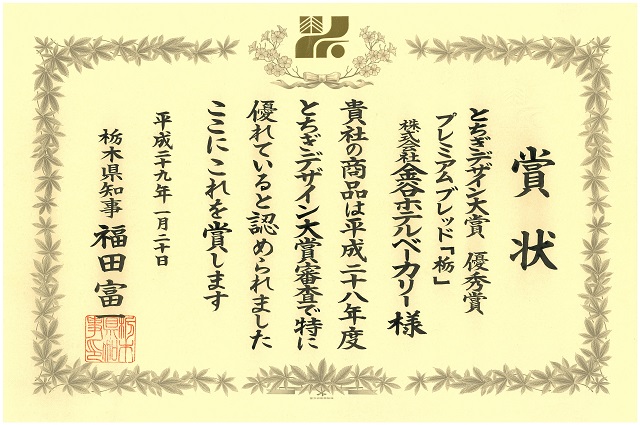 賞状
とちぎデザイン大賞 優秀賞
プレミアムブレッド「栃」
株式会社金谷ホテルベーカリー 様
貴社の商品は平成二十八年度
とちぎデザイン大賞審査で特に
優れていると認められました
ここにこれを賞します
平成二十九年一月二十日
栃木県知事 福田富一
栃木県知事印